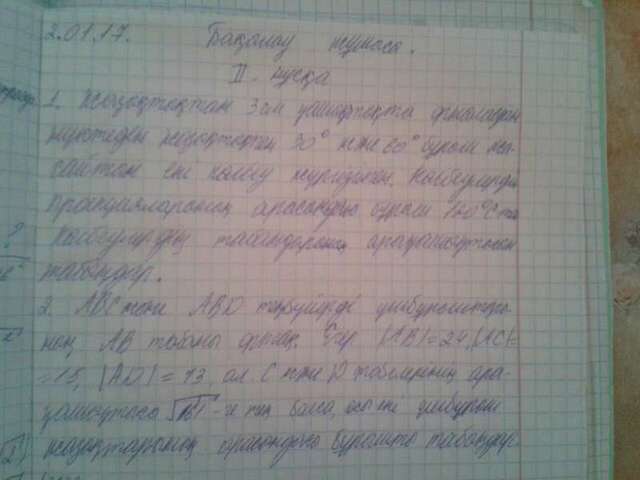 2.01.17. Бақылау жұмысы.
II - нұсқа
1. Жазықтықтан 3см қашықтықта орналасқан
нүктеден жазықтықпен 30° және 60° бұрыш жа-
сайтын екі көлбеу жүргізілген. Көлбеулердің
проекцияларының арасындағы бұрыш 120° С
Көлбеулердің табандарының арақашықтығын
табыңдар.
2. ABC және ABD теңбүйірлі үшбұрыштары-
ның AB табаны ортақ. Егер |AB|=24, |AC|=
=15, |AD|=13, ал C және D төбелерінің ара-
қашықтығы -ге тең болса, осы екі үшбұрыш
жазықтарының арасындағы бұрышты табыңдар